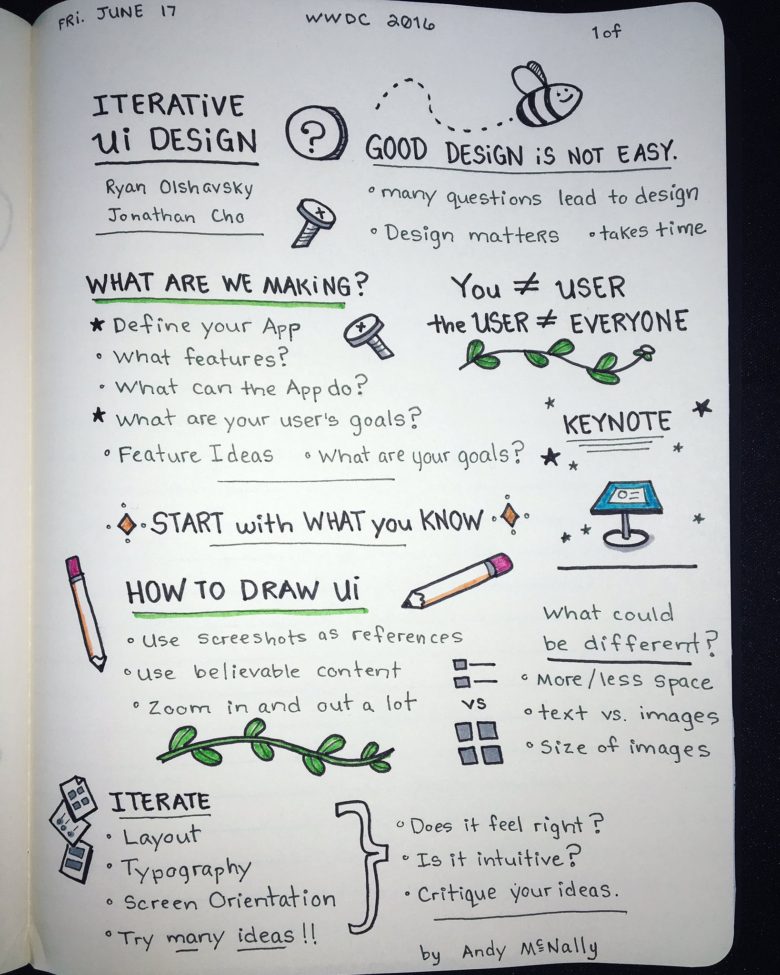 FRi. JUNE 17
WWDC 2016
1 of
ITERATiVE
Ui DESiGN
Ryan Olshavsky
Jonathan Cho
?
GOOD DESiGN iS NOT EASY.
• many questions lead to design
• Design matters • takes time
WHAT ARE WE MAKiNG?
★ Define your App
• What features?
• What can the App do?
★ What are your user's goals?
• Feature Ideas • What are your goals?
You ≠ USER
the USER ≠ EVERYONE
KEYNOTE
START with WHAT you KNOW
HOW TO DRAW Ui
• Use screeshots as references
• use believable content
• Zoom in and out a lot
What could
be different?
• More/less space
• text vs. images
• Size of images
VS
ITERATE
• Layout
• Typography
• Screen Orientation
• Try many ideas!!
• Does it feel right?
• Is it intuitive?
• Critique your ideas.
by Andy McNally